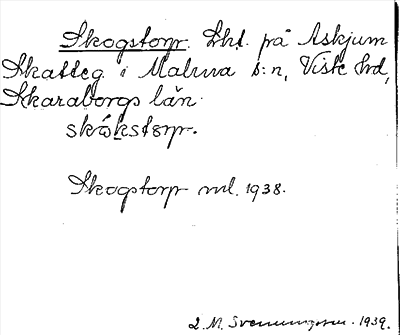 Skogstorp. Lht. på Askjum
Skatteg. i Malma s:n, Viste hrd,
Skaraborgs län.
skókstorp.
Skogstorp ml. 1938.
L. M. Svenungsson. 1939.